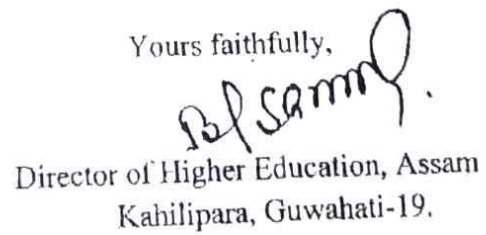 Yours faithfully,
Director of Higher Education, Assam
Kahilipara, Guwahati-19.